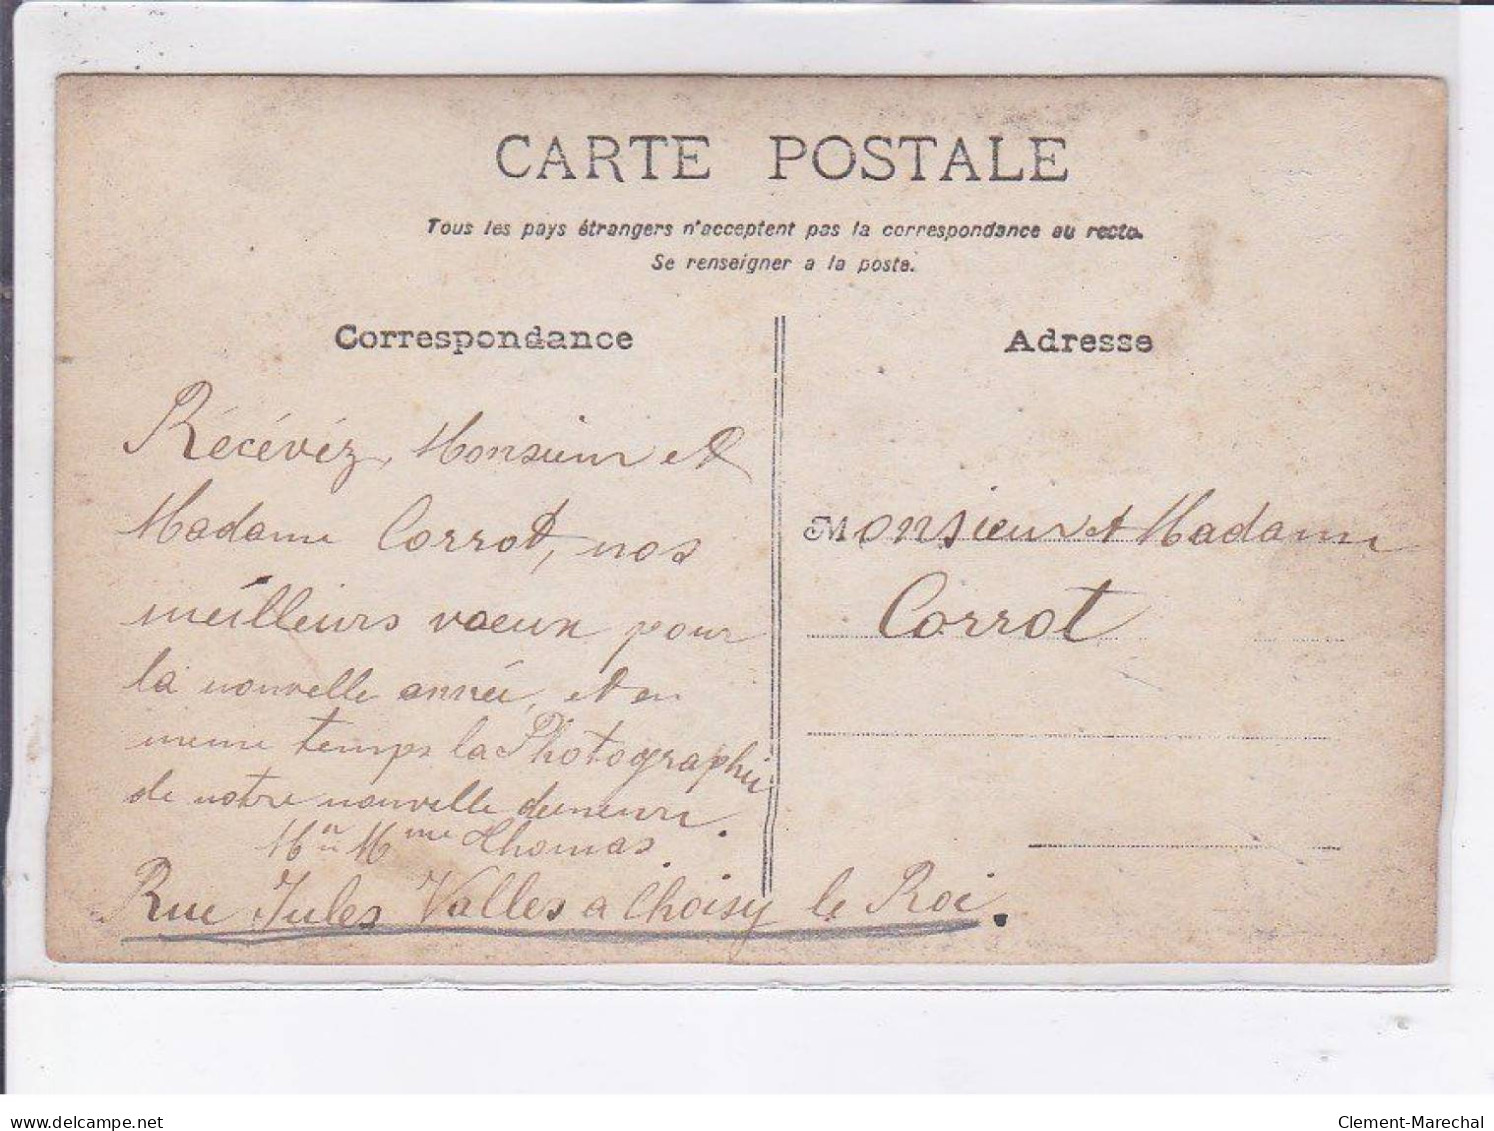 CARTE POSTALE
Tous les pays étrangers n'acceptent pas la correspondance au recto.
Se renseigner a la poste.
Correspondance
Récévéz, Monsieur et
Madame Corrot, nos
meilleurs vœux pour
la nouvelle année, et en
meme temps la Photographie
de notre nouvelle demeure.
Mr et Mme Thomas.
Rue Jules Valles a Choisy le Roi.
Adresse
Monsieur et Madame
Corrot
delcampe.net
Clement-Marechal